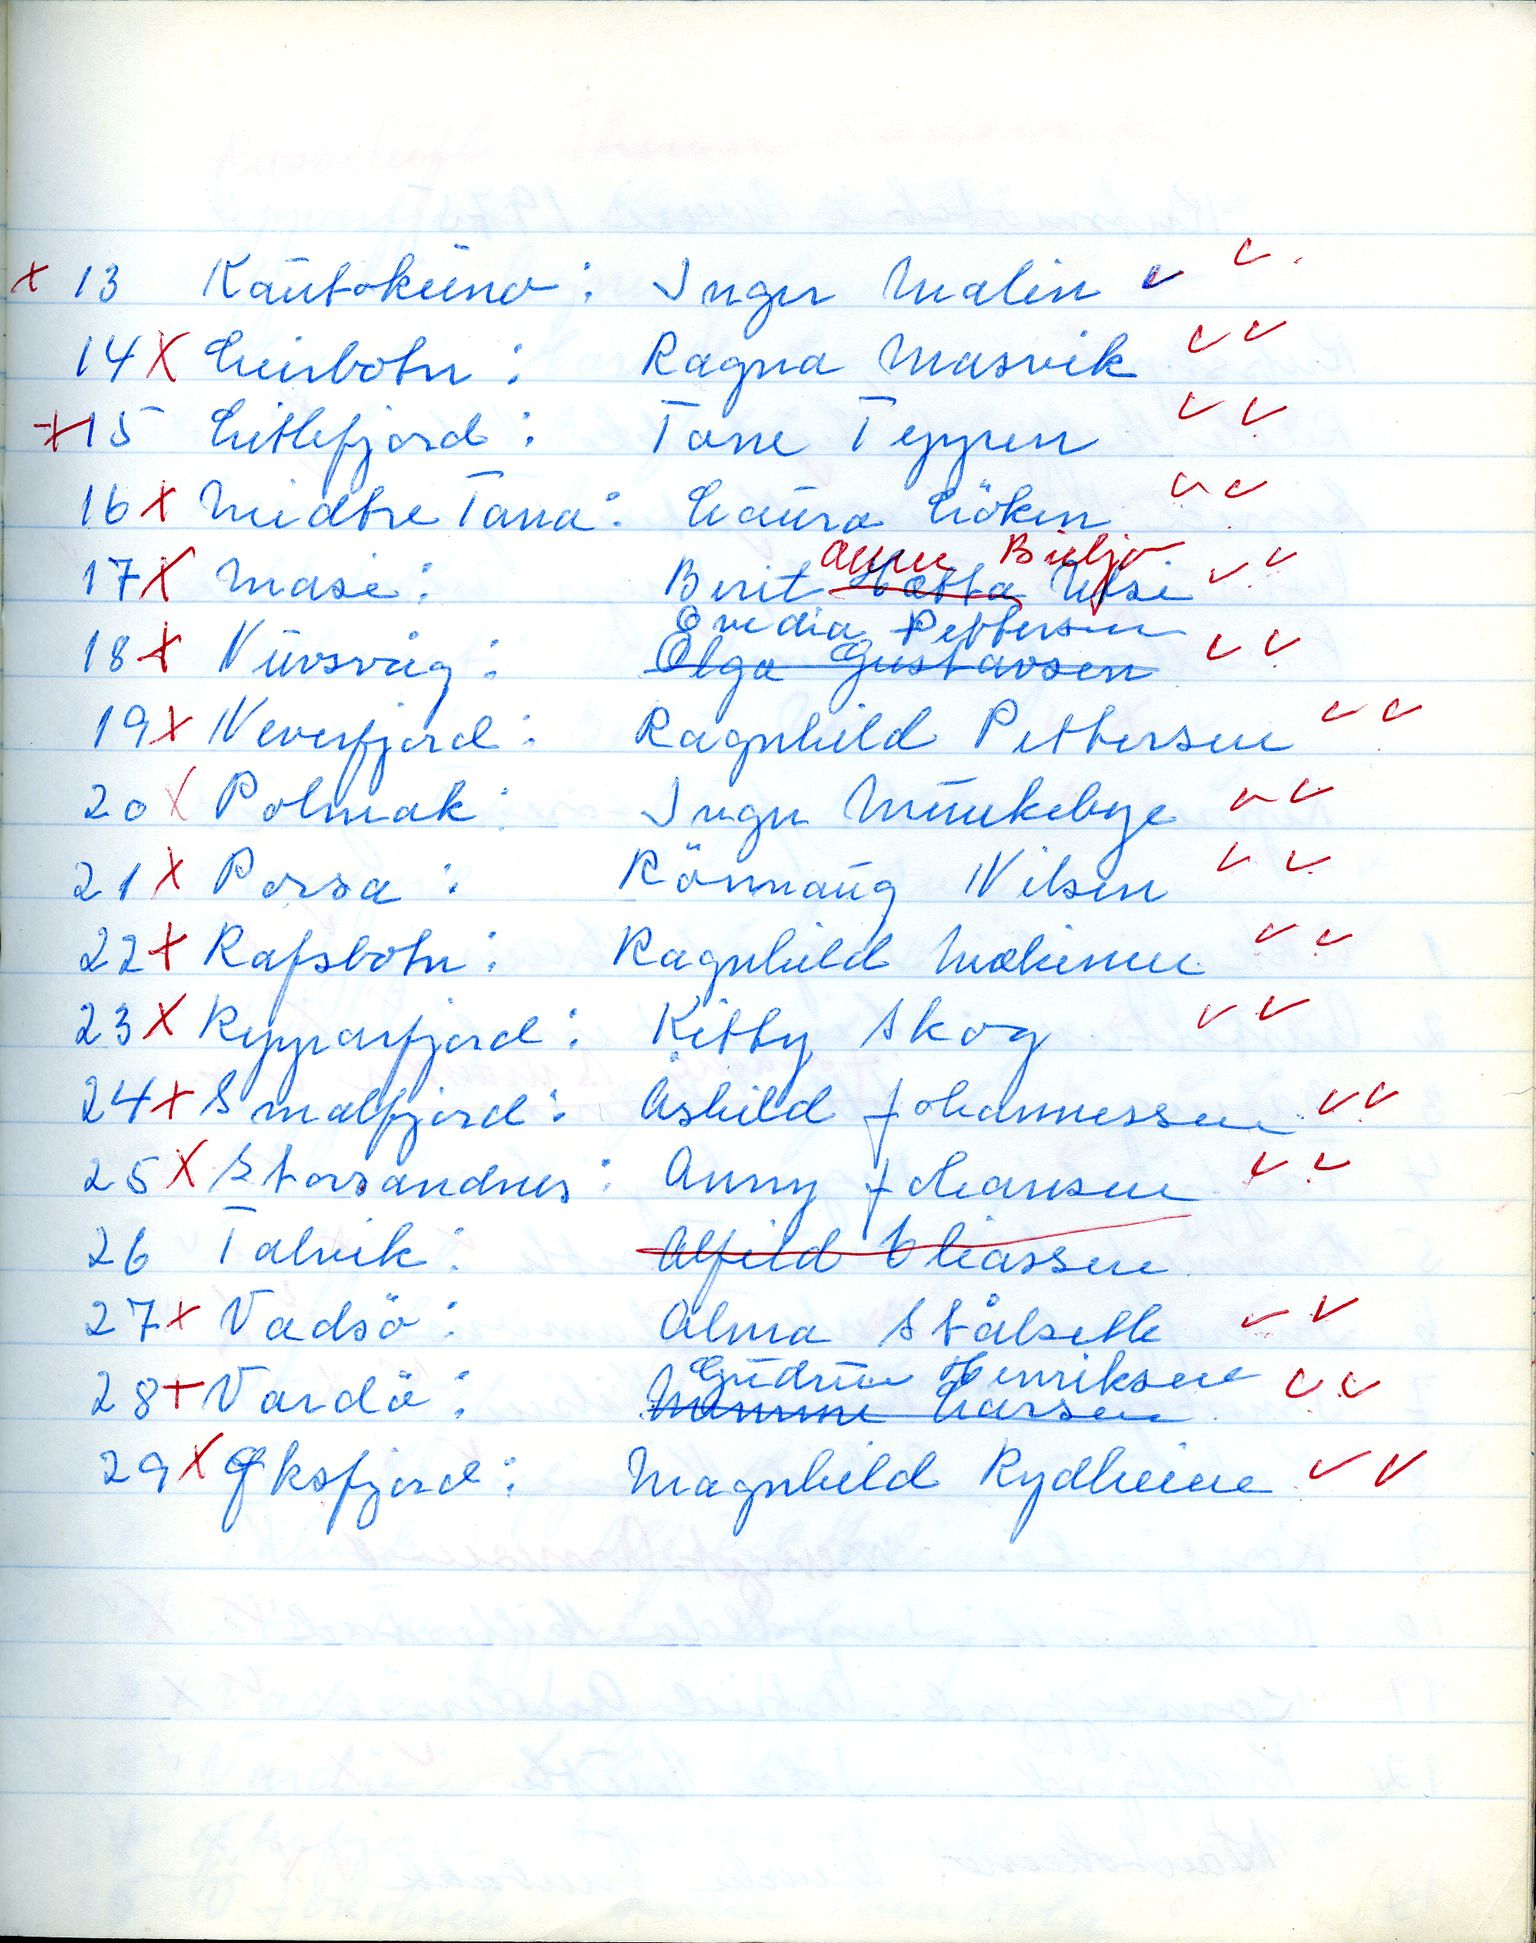 x 13 Kautokeino: Inger Malin ✓ ✓
14 x Leirbotn: Ragna Masvik ✓ ✓
x 15 Litlefjord: Tone Teppen ✓ ✓
16 x Midtre Tana: Laura Löken ✓ ✓
Anne Buljo
17 x Masi: Berit Hætta Utsi ✓ ✓
Ovedia Pettersen
18 x Nuvsvåg: Olga Gustavsen ✓ ✓
19 x Neverfjord: Ragnhild Pettersen ✓ ✓
20 x Polmak: Inger Munkebye ✓ ✓
21 x Porsa: Rönnaug Nilsen ✓ ✓
22 x Rafsbotn: Ragnhild Mælumen ✓ ✓
23 x Repparfjord: Kitty Skog ✓ ✓
24 x Smalfjord: Åshild Johannessen ✓ ✓
25 x Storsandnes: Anny Johansen ✓ ✓
26 Talvik: Alfild Eliassen
27 x Vadsö: Alma Stålseth ✓ ✓
Gudrun Henriksen
28 x Vardö: Larsen ✓ ✓
29 x Øksfjord: Magnhild Rydheim ✓ ✓